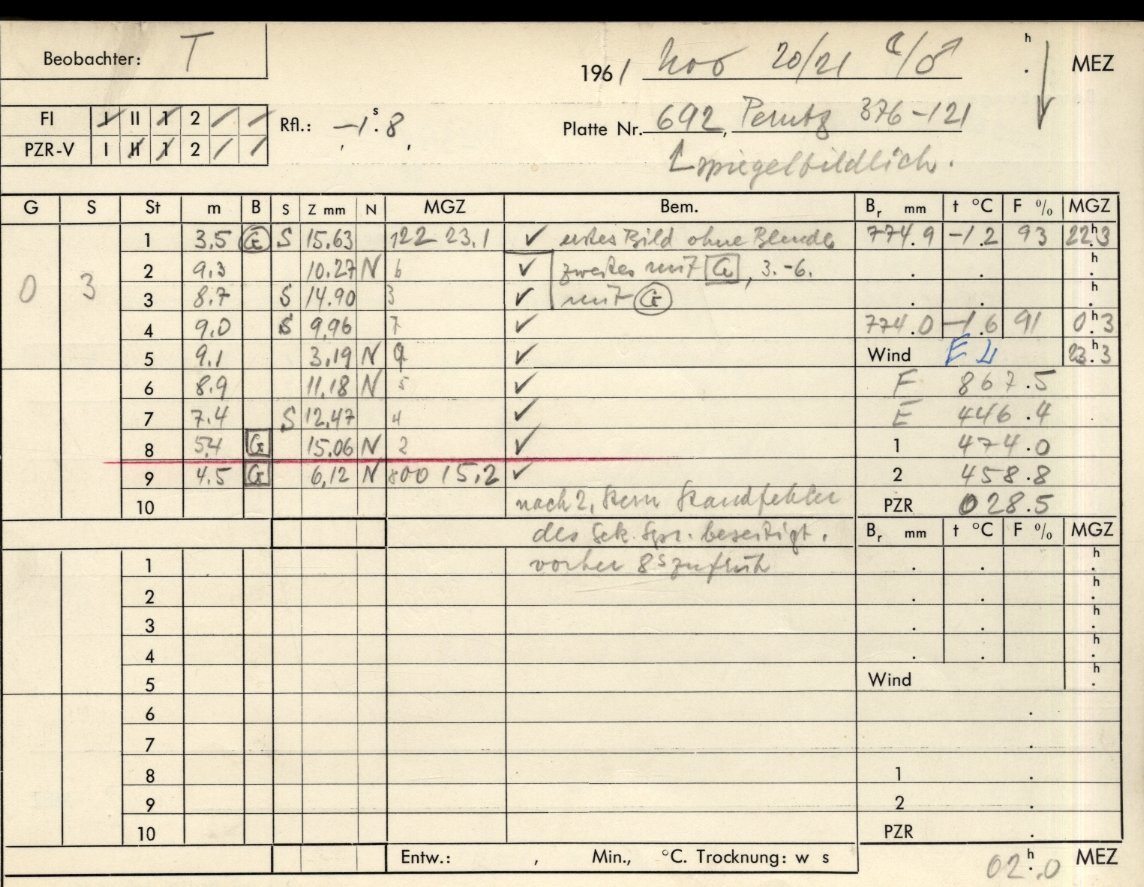 Beobachter: T
1961 Nov 20/21 ☾/♂ h . MEZ
FI I II 1 2
PZR-V I II 1 2
Rfl.: —1 s. 8
Platte Nr. 692, Perutz 376-121
↑ spiegelbildlich.
G S St m B S Z mm N MGZ Bem. Br mm t °C F % MGZ
1 3,5 G S 15,63 122 23,1 ✓ erstes Bild ohne Blende 774.9 -1.2 93 22h.3
2 9,3 10.27 N 6 ✓ zweites mit G, 3.-6. . . h.
0 3 3 8.7 S 14.90 3 ✓ mit G . . h.
4 9,0 S 9,96 7 ✓ 774.0 -1.6 91 0h.3
5 9.1 3,19 N 9 ✓ Wind 23h.3
6 8.9 11,18 N 5 ✓ F 867.5
7 7.4 S 12,47 4 ✓ E 446.4
8 5,4 G 15,06 N 2 ✓ 1 474.0
9 4.5 G 6,12 N 800 15,2 ✓ 2 458.8
10 nach 2. Stern Standfehler PZR 028.5
des Sek. Spr. beseitigt. Br mm t °C F % MGZ
1 vorher 8s zu früh . . h.
2 . . h.
3 . . h.
4 . . h.
5 Wind h.
6 .
7 .
8 1 .
9 2 .
10 PZR .
Entw.: , Min., °C. Trocknung: w s 02h.0 MEZ